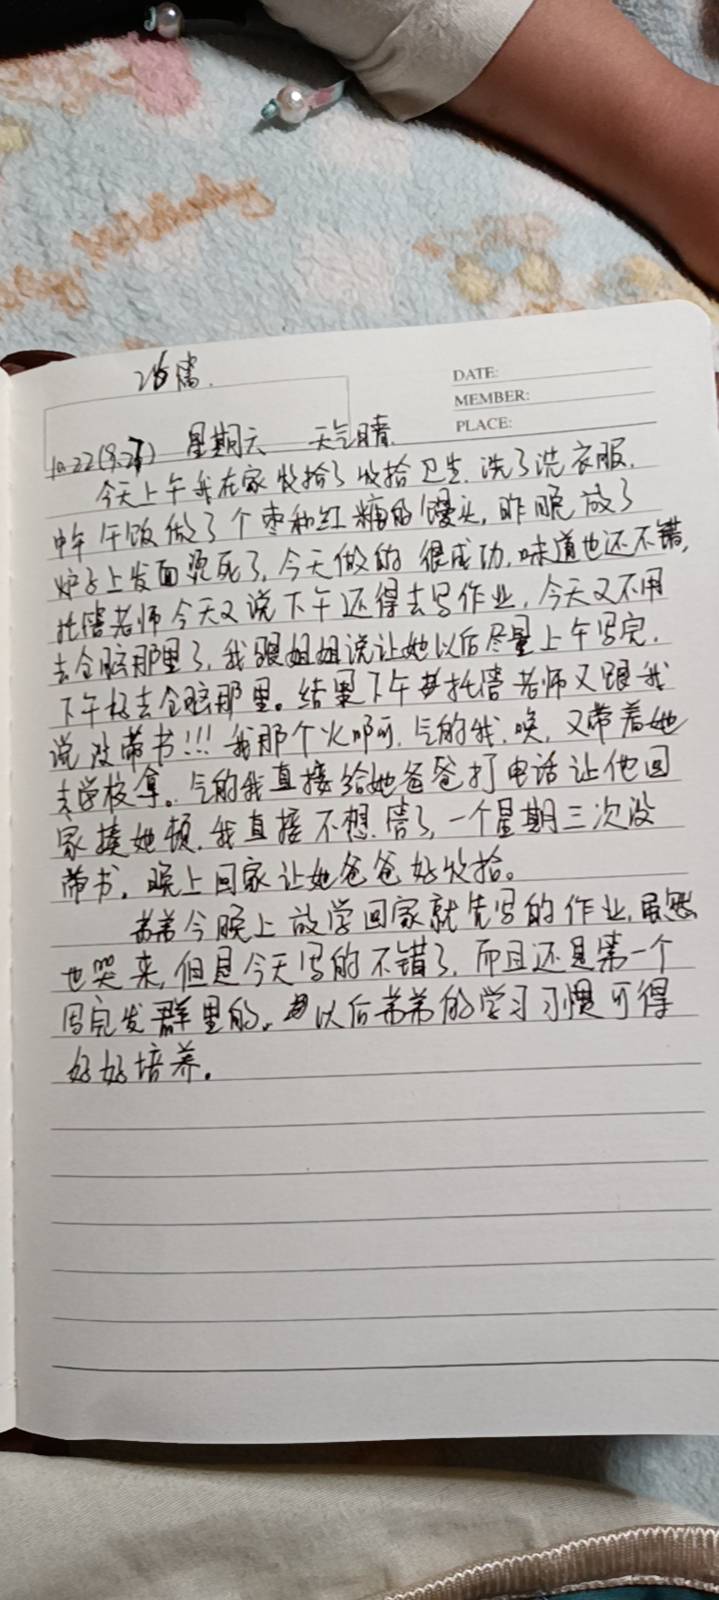 DATE:
MEMBER:
PLACE:
10.22(9.27) 星期六 天气晴.
今天上午我在家收拾了收拾卫生.洗了洗衣服.
中午午饭做了个枣和红糖的馒头,昨晚放了
炉子上发面烫死了,今天做的很成功,味道也还不错,
托管老师今天又说下午还得去写作业,今天又不用
去全脑那里了,我跟姐姐说让她以后尽量上午写完.
下午好去全脑那里。结果下午托管老师又跟我
说没带书!!!我那个火啊,气的我.唉,又带着她
去学校拿。气的我直接给她爸爸打电话让他回
家揍她顿.我直接不想管了,一个星期三次没
带书,晚上回家让她爸爸好收拾。
弟弟今晚上放学回家就先写的作业,虽然
也哭来,但是今天写的不错了,而且还是第一个
写完发群里的。以后弟弟的学习习惯可得
好好培养。